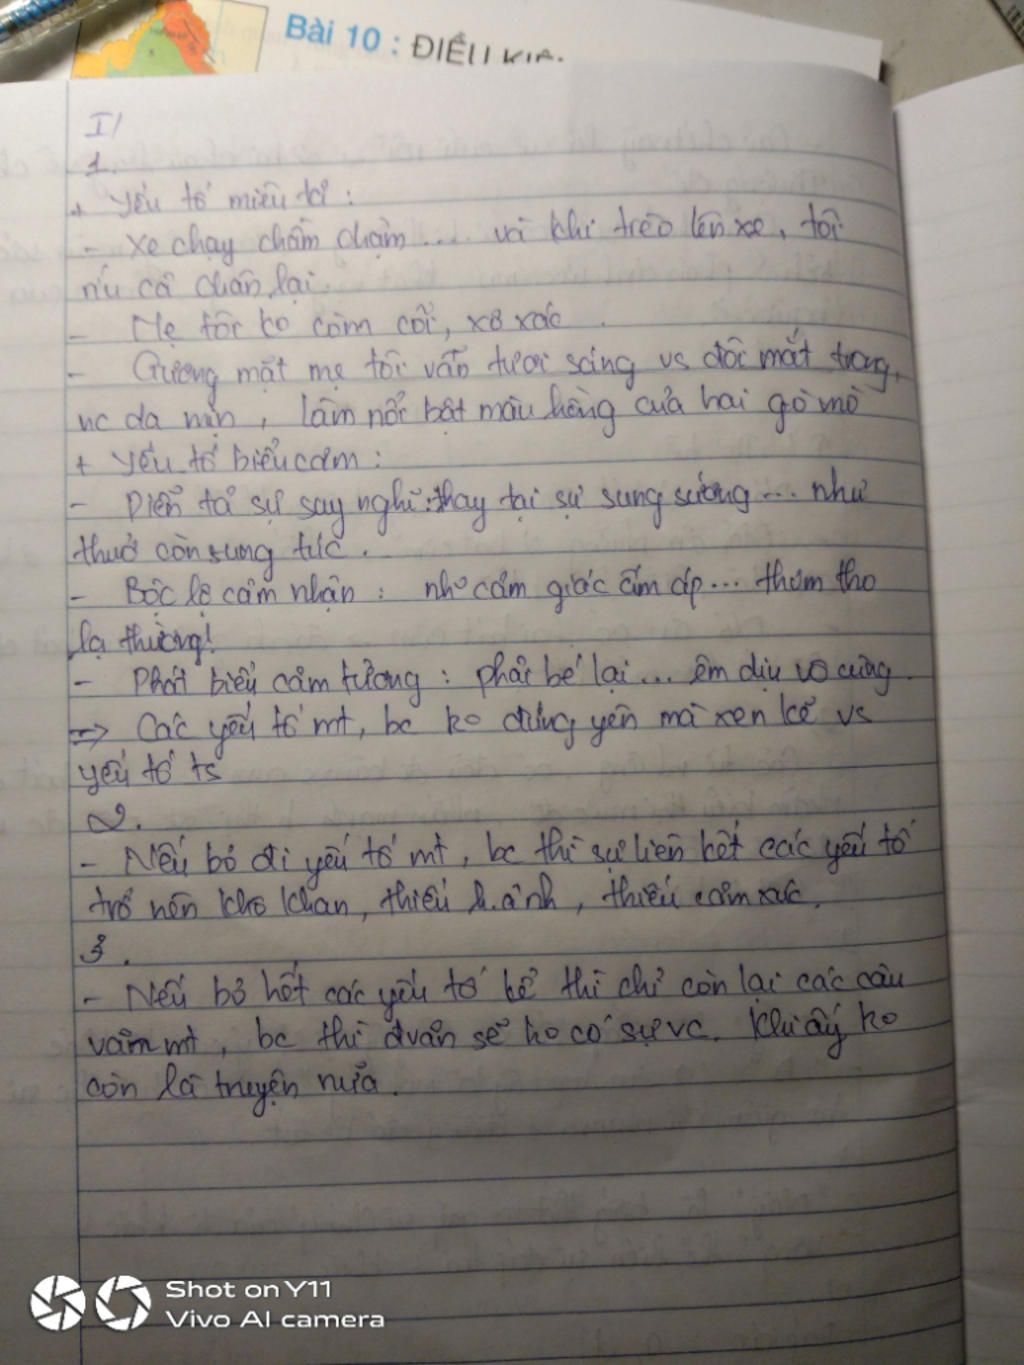 Bài 10 : ĐIỀU KIỆ
I/
1.
+ Yếu tố miêu tả :
- Xe chạy chầm chậm .... và khi trèo lên xe, tôi
ríu cả chân lại.
- Mẹ tôi ko còm cõi, xơ xác .
- Gương mặt mẹ tôi vẫn tươi sáng vs đôi mắt trong,
nc da mịn , làm nổi bật màu hồng của hai gò má
+ Yếu tố biểu cảm :
- Diễn tả sự suy nghĩ : thay tại sự sung sướng ... như
thuở còn sung túc .
- Bộc lộ cảm nhận : những cảm giác ấm áp ... thơm tho
lạ thường!
- Phát biểu cảm tưởng : phải bé lại ... êm dịu vô cùng .
=> Các yếu tố mt, bc ko đứng yên mà xen kẽ vs
yếu tố ts
2.
- Nếu bỏ đi yếu tố mt, bc thì sự liên kết các yếu tố
trở nên khô khan, thiếu h.ảnh, thiếu cảm xúc.
3.
- Nếu bỏ hết các yếu tố kể thì chỉ còn lại các câu
văn mt, bc thì đvăn sẽ ko có sự vc. Khi ấy ko
còn là truyện nữa.
Shot on Y11
Vivo AI camera